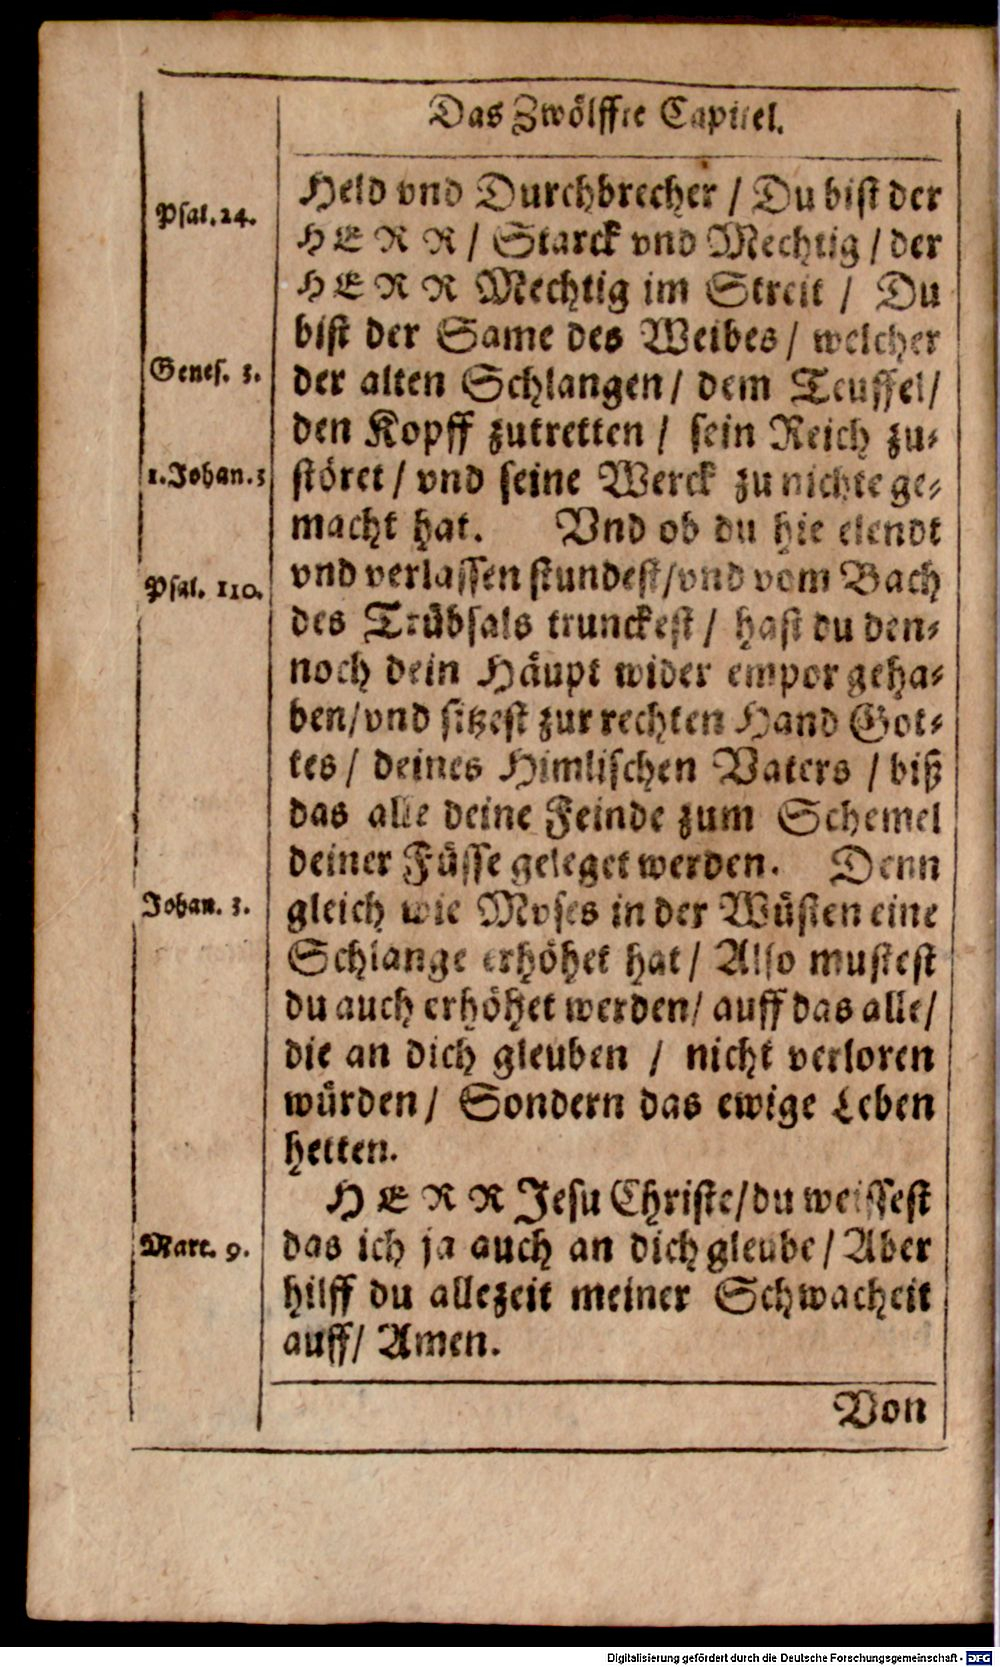 Das Zwölffte Capittel.
Psal. 24.
Genes. 3.
1. Johan. 3
Psal. 110.
Johan. 3.
Marc. 9.
Held vnd Durchbrecher / Du bist der
HERR / Starck vnd Mechtig / der
HERR Mechtig im Streit / Du
bist der Same des Weibes / welcher
der alten Schlangen / dem Teuffel /
den Kopff zutretten / sein Reich zu⸗
störet / vnd seine Werck zu nichte ge⸗
macht hat. Vnd ob du hie elendt
vnd verlassen stundest / vnd vom Bach
des Trübsals trunckest / hast du den⸗
noch dein Häupt wider empor geha⸗
ben / vnd sitzest zur rechten Hand Got⸗
tes / deines Himlischen Vaters / biß
das alle deine Feinde zum Schemel
deiner Füsse geleget werden. Denn
gleich wie Moses in der Wüsten eine
Schlange erhöhet hat / Also mustest
du auch erhöhet werden / auff das alle /
die an dich gleuben / nicht verloren
würden / Sondern das ewige Leben
hetten.
HERR Jesu Christe / du weissest
das ich ja auch an dich gleube / Aber
hilff du allezeit meiner Schwacheit
auff / Amen.
Von
Digitalisierung gefördert durch die Deutsche Forschungsgemeinschaft - DFG